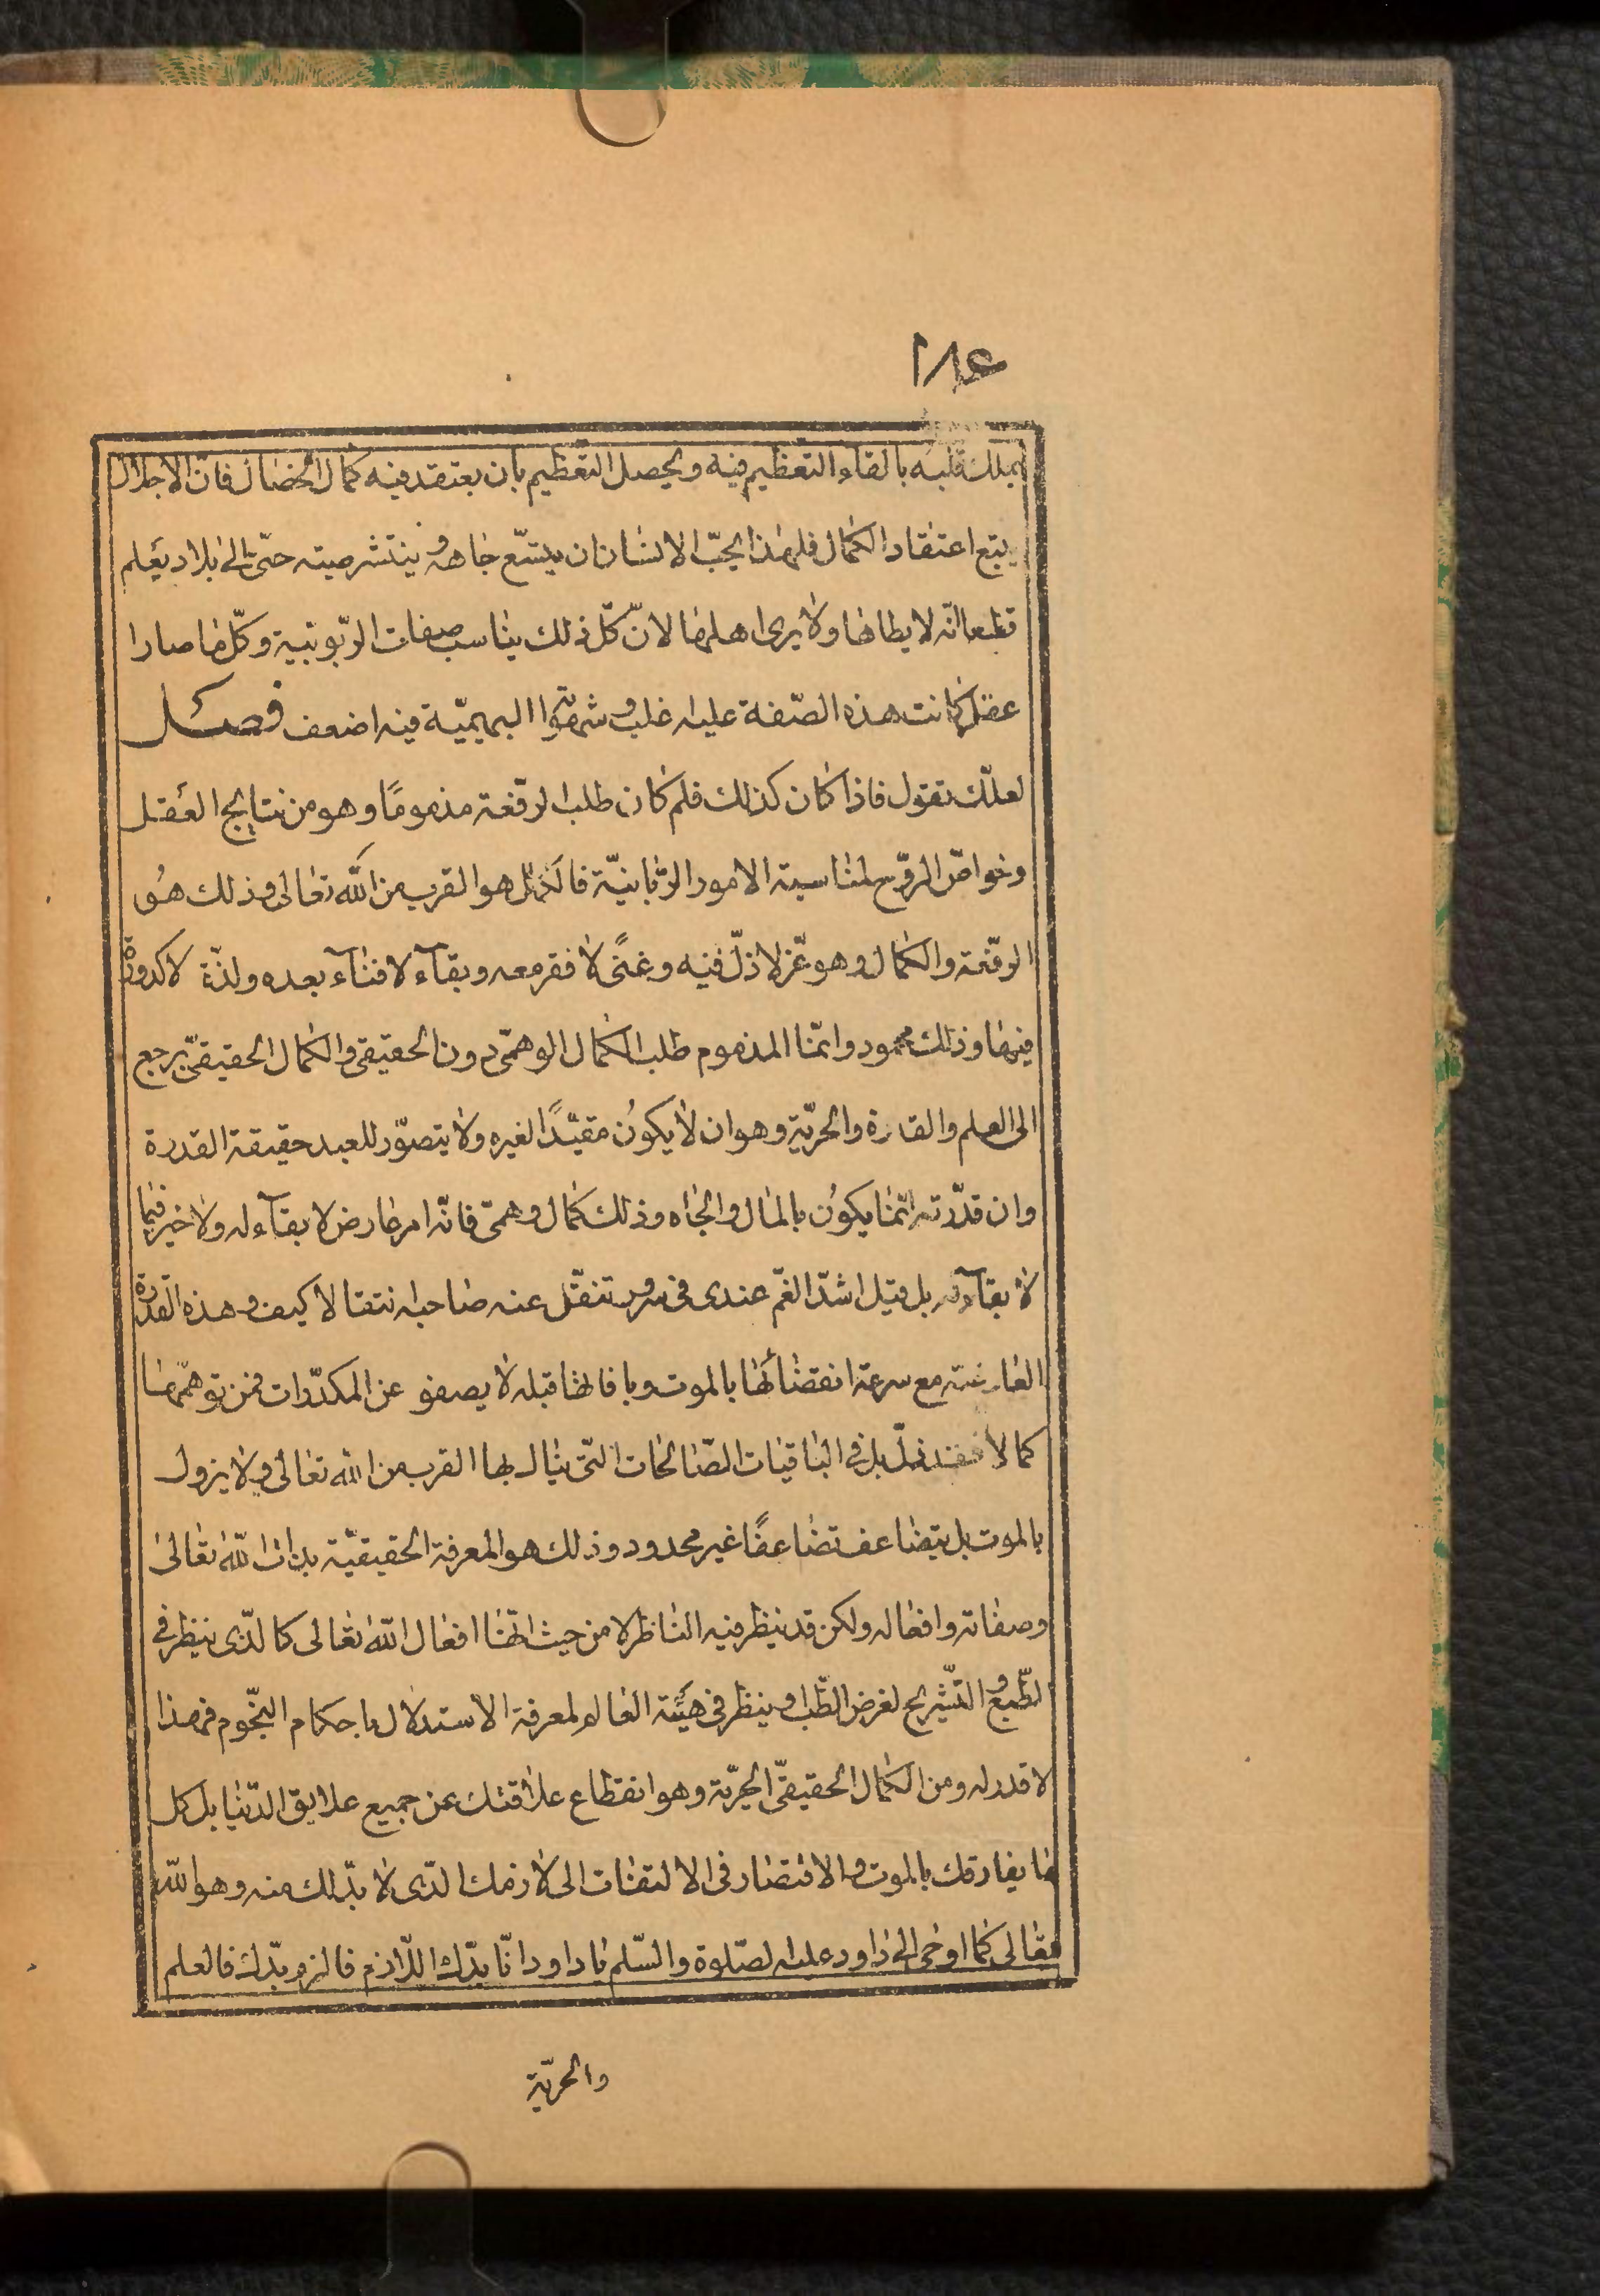 ١٨٤
يملك قلبه بالقاء التعظيم فيه ويحصل التعظيم بان يعتقد فيه كمال الخصال فان الاجلال
يتبع اعتقاد الكمال فلهذا يحبّ الانسان ان يتسّع جاهه و ينتشر صيته حتّى الى بلاد يعلم
قطعا انّه لا يطاها ولا يرى اهلها لانّ كلّ ذلك يناسب صفات الربّوبيّة وكلّ ما صار
عقل كانت هذه الصّفة عليه اغلب و شهوته البهيميّة فيه اضعف فصل
لعلّك تقول فاذا كان كذلك فلم كان طلب الرّفعة مذمومًا وهو من نتايج العقل
وخواصّ الرّوح لمناسبة الامور الربّانيّة فالكمال هو القرب من الله تعالى وذلك هو
الرّفعة والكمال وهو عزّ لا ذلّ فيه وغنًى لا فقر معه وبقاء لا فناء بعده ولذّة لا كدورة
فيها وذلك محمود وانّما المذموم طلب الكمال الوهمّى دون الحقيقى والكمال الحقيقىّ يرجع
الى العلم والقدرة والحريّة وهو ان لا يكون مقيّدًا لغيره ولا يتصوّر للعبد حقيقة القدرة
وان قدّرته انّما يكون بالمال والجاه وذلك كمال وهمىّ فانّه امر عارض لا بقاء له ولا خير فيما
لا بقاء له بل قيل اشدّ الغمّ عندى فى سرور تنقّل عنه صاحبه انتقالا كيف و هذه القدرة
العارضة مع سرعة انقضائها بالموت وبافاتها قبله لا يصفو عن المكدّرات فمن توهّمها
كمالا فقد ذلّ بل فى الباقيات الصّالحات الّتى ينال بها القرب من الله تعالى و لا يزول
بالموت بل يتضاعف تضاعفًا غير محدود وذلك هو المعرفة الحقيقيّة بذات الله تعالى
وصفاته وافعاله ولكن قد ينظر فيه الناظر لا من حيث انّها افعال الله تعالى كالذّى ينظر فى
لطّبع و التّشريح لغرض الطّب او ينظر فى هيئة العالم لمعرفة الاستدلال باحكام النجّوم فهذا
لا قدر له ومن الكمال الحقيقىّ الحريّة وهو انقطاع علاقتك عن جميع علايق الدّنيا بل كل
ما يفارقك بالموت و الاقتصار فى الالتفات الى لازمك الذّى لا بدّ لك منه وهو الله
تعالى كما اوحى الى داود عليه لصّلوة والسّلم يا داود انّا بدّك اللّازم فالزم بدّك فالعلم
والحريّة